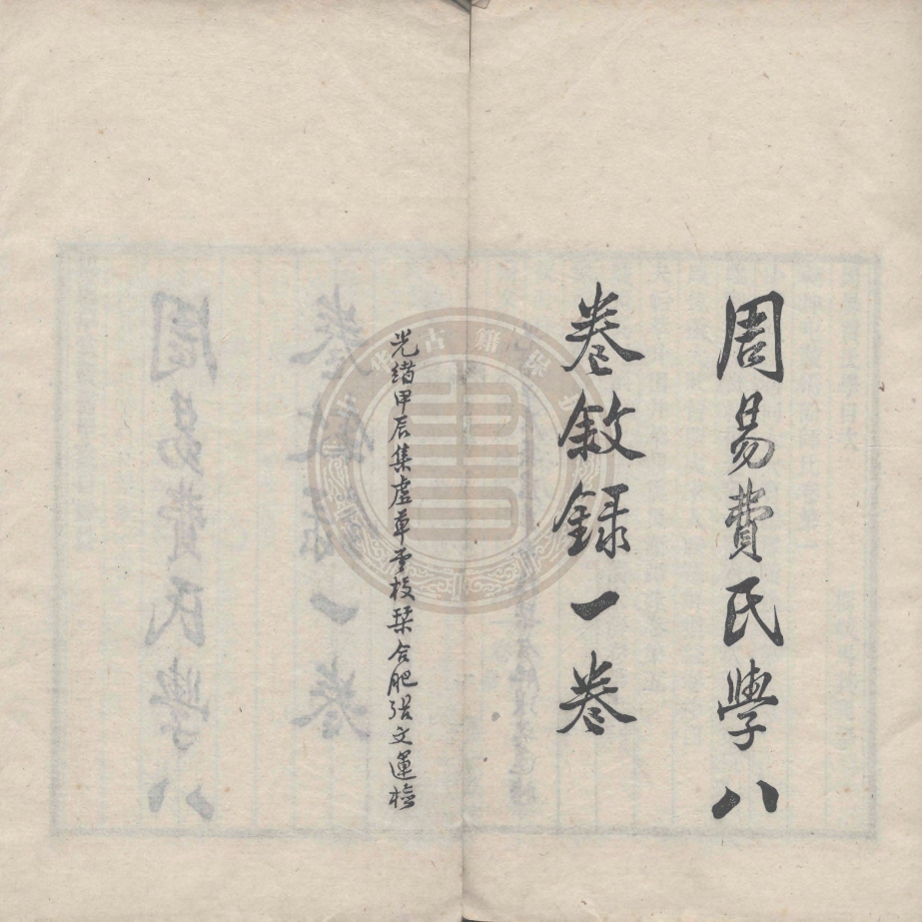 周易費氏學八
卷敘録一卷
光緒甲辰集虛草堂校栞合肥張文運檢